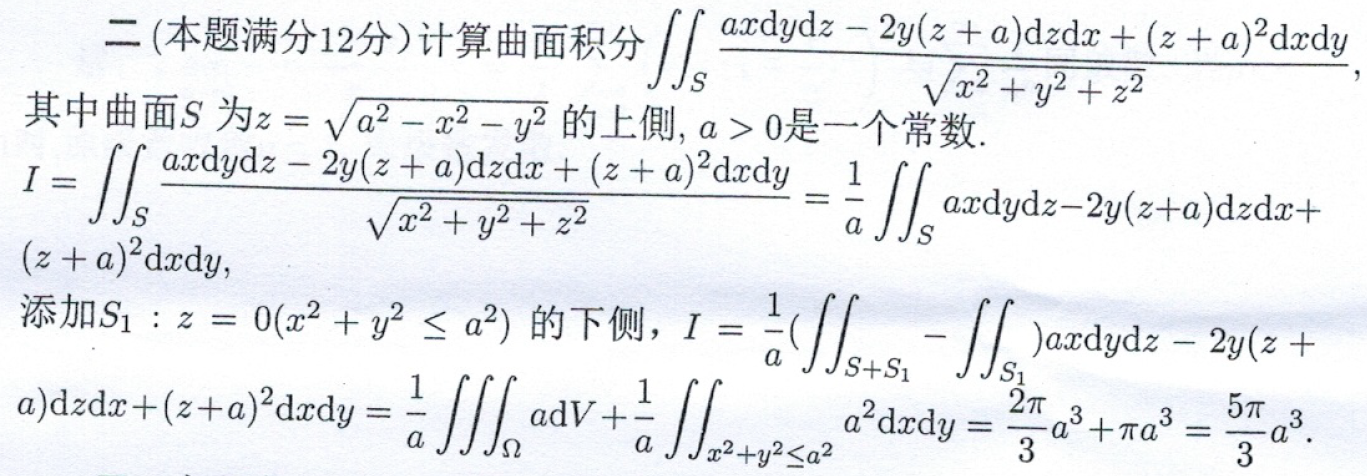 二 (本题满分12分)计算曲面积分 $\iint_S \frac{ax\mathrm{d}y\mathrm{d}z - 2y(z+a)\mathrm{d}z\mathrm{d}x + (z+a)^2\mathrm{d}x\mathrm{d}y}{\sqrt{x^2+y^2+z^2}}$,
其中曲面$S$ 为$z = \sqrt{a^2 - x^2 - y^2}$ 的上側, $a > 0$是一个常数.
$I = \iint_S \frac{ax\mathrm{d}y\mathrm{d}z - 2y(z+a)\mathrm{d}z\mathrm{d}x + (z+a)^2\mathrm{d}x\mathrm{d}y}{\sqrt{x^2+y^2+z^2}} = \frac{1}{a}\iint_S ax\mathrm{d}y\mathrm{d}z - 2y(z+a)\mathrm{d}z\mathrm{d}x +$
$(z+a)^2\mathrm{d}x\mathrm{d}y$,
添加$S_1 : z = 0(x^2 + y^2 \leq a^2)$ 的下侧, $I = \frac{1}{a}(\iint_{S+S_1} - \iint_{S_1})ax\mathrm{d}y\mathrm{d}z - 2y(z+$
$a)\mathrm{d}z\mathrm{d}x + (z+a)^2\mathrm{d}x\mathrm{d}y = \frac{1}{a}\iiint_\Omega a\mathrm{d}V + \frac{1}{a}\iint_{x^2+y^2\leq a^2} a^2\mathrm{d}x\mathrm{d}y = \frac{2\pi}{3}a^3 + \pi a^3 = \frac{5\pi}{3}a^3$.